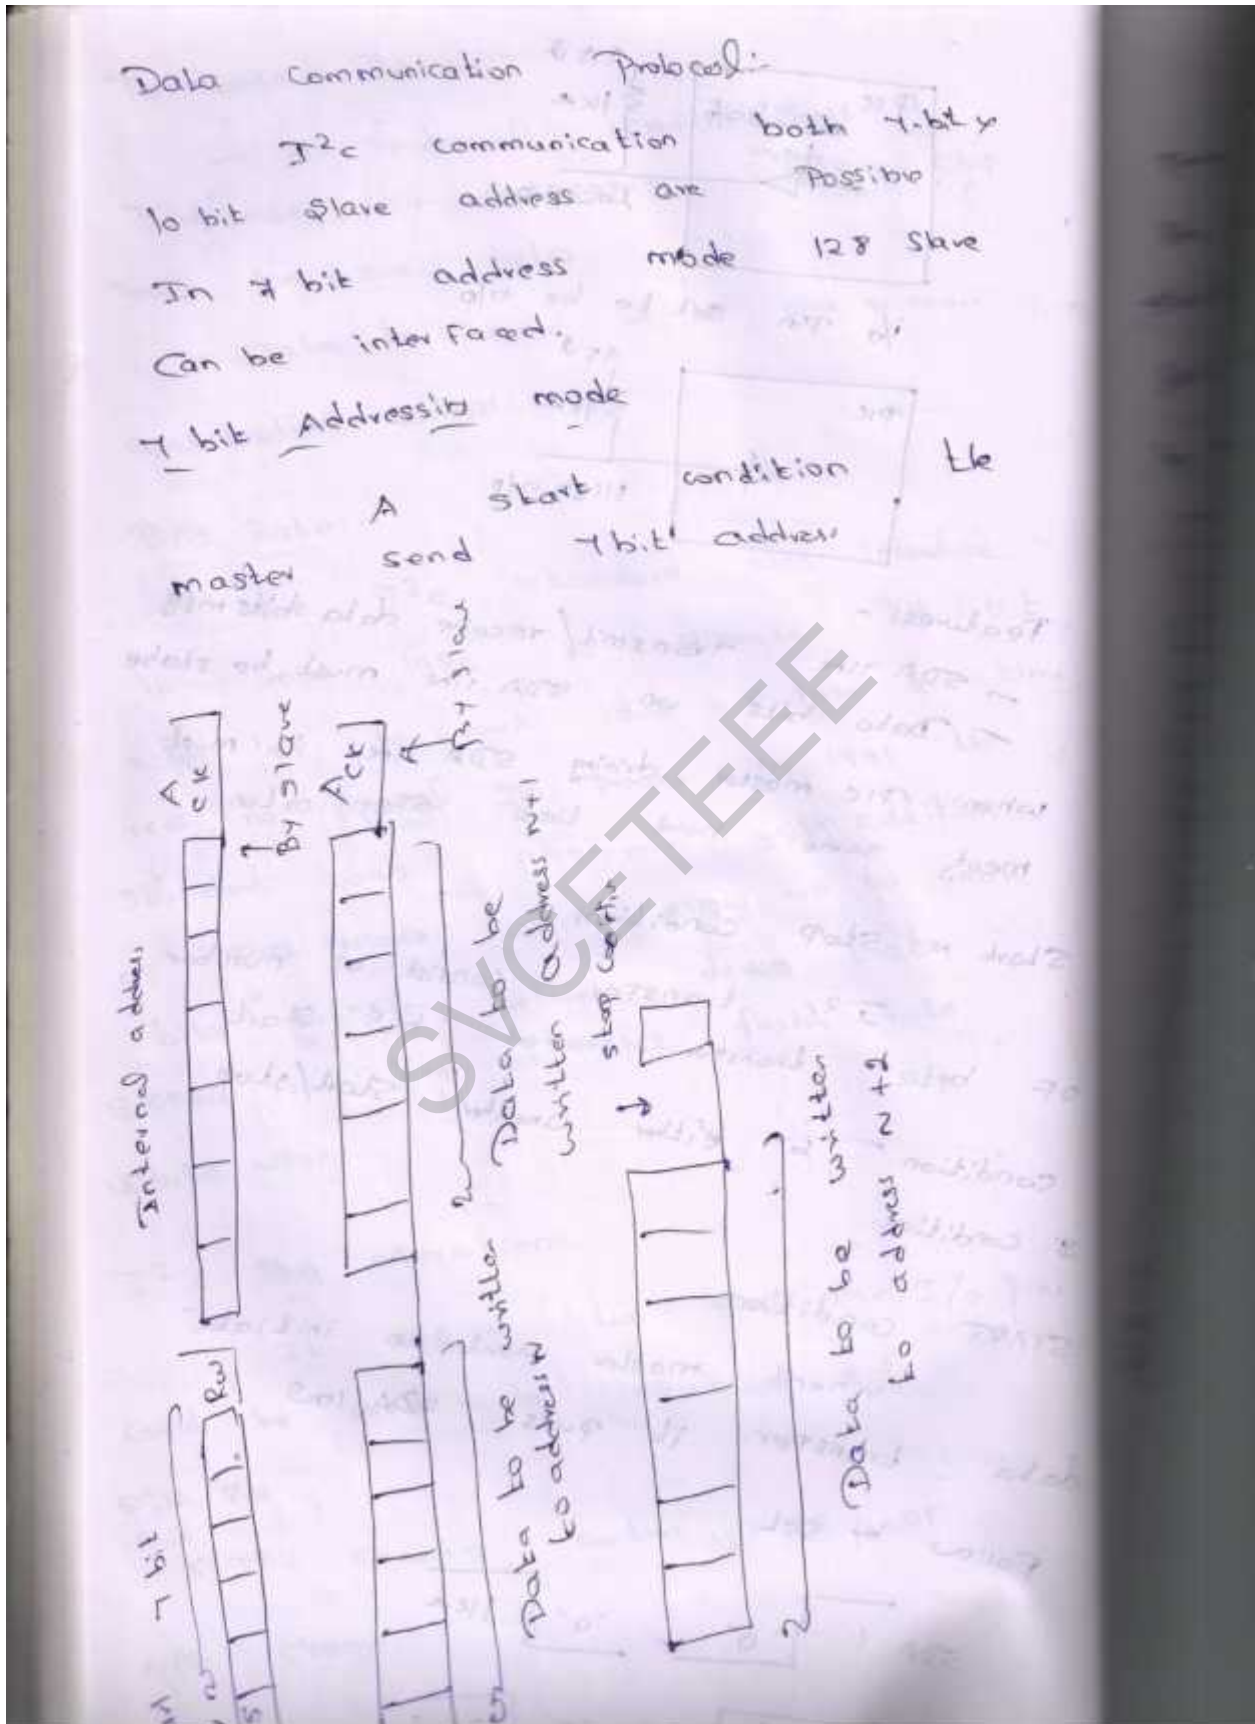 Data Communication Protocol:-
I²c communication both 7-bit &
10 bit slave address are Possible
In 7 bit address mode 128 slave
Can be interfaced.
7 bit Addressin mode
A start condition the
master send 7bit address
Internal address
A
ck
By slave
7 bit
RW
A
ck
By slave
Data to be
written address N+1
Data to be written
to address N
stop
Data to be written
to address N+2
SVCETEEE